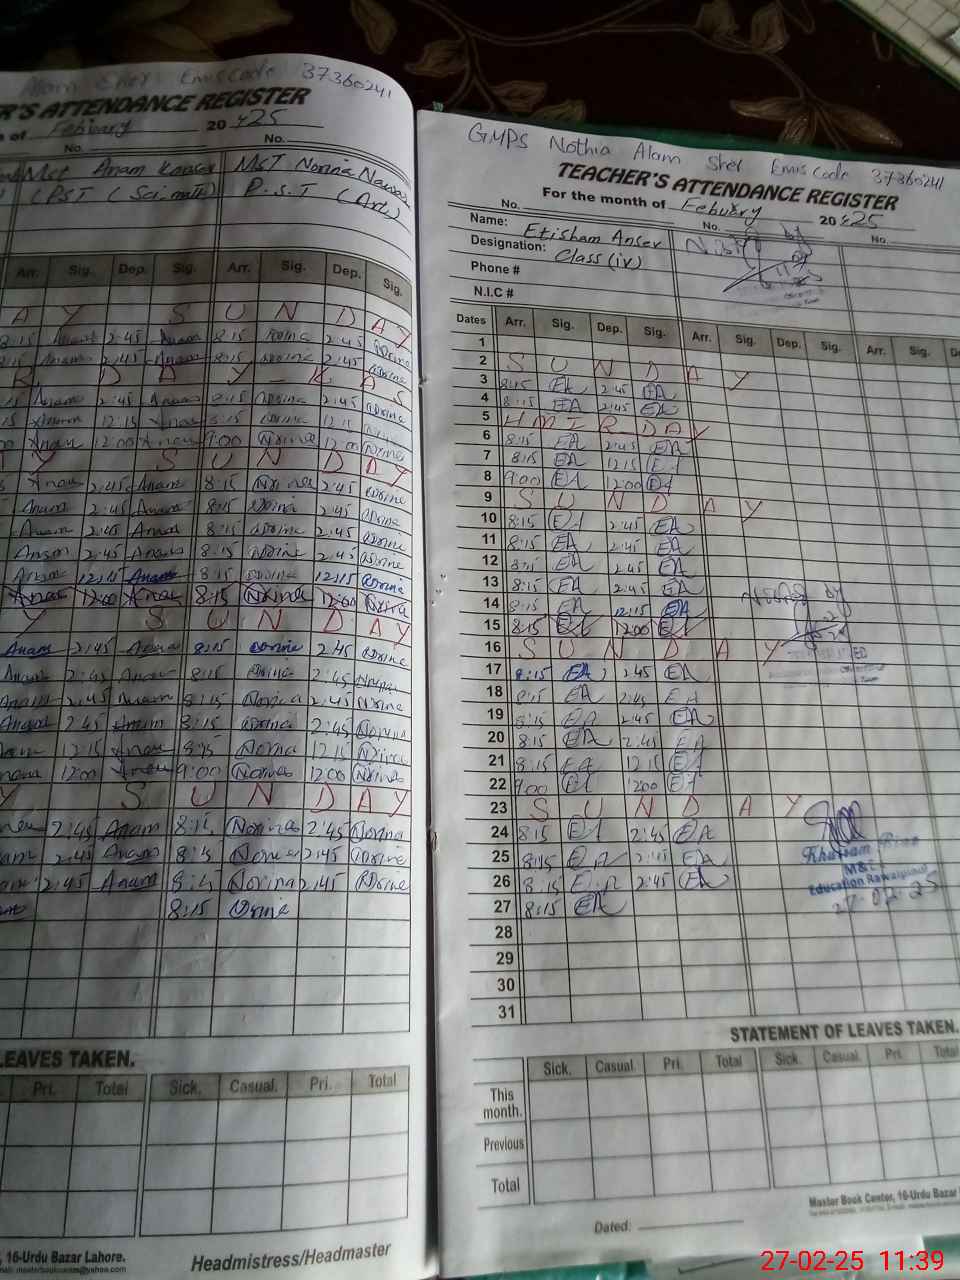 Alam Sher Emis Code 37360241
ER'S ATTENDANCE REGISTER
of Febuary 20 25
No. No.
Mst Anam Kansar MST Norina Nawas
(PST (Sci. P.S.T (Art)
Arr. Sig. Dep. Sig. Arr. Sig. Dep. Sig.
A Y S U N D A Y
8:15 Anam 2:45 Anam 8:15 Norina 2:45 Norine
8:15 Anam 2:45 Anam 8:15 Norine 2:45 Norine
R D A Y - K A S
Anam 2:45 Anam 8:15 Norine 2:45 Norine
Anam 12:15 Anam 8:15 Norine 12:15
Anam 12:00 Anam 9:00 Norine 12:00 Norine
Y S U N D A Y
Anam 2:45 Anam 8:15 Norine 2:45 Norine
Anam 2:45 Anam 8:15 Norine 2:45 Norine
Anam 2:45 Anam 8:15 Norine 2:45 Norine
Anam 2:45 Anam 8:15 Norine 2:45 Norine
Anam 12:15 Anam 8:15 Norine 12:15 Norine
Anam 12:00 Anam 8:15 Norine 12:00 Norine
Y S U N D A Y
Anam 2:45 Anam 8:15 Norine 2:45 Norine
Anam 2:45 Anam 8:15 Norine 2:45 Norina
Anam 2:45 Anam 8:15 Norina 2:45 Norine
Anam 2:45 Anam 8:15 Norine 2:45 Norina
12:15 Anam 8:15 Norina 12:15 Norina
12:00 Anam 9:00 Norina 12:00 Norine
Y S U N D A Y
2:45 Anam 8:15 Norina 2:45 Norina
2:45 Anam 8:15 Norine 2:45 Norine
2:45 Anam 8:15 Norina 2:45 Norine
8:15 Norine
LEAVES TAKEN.
Pri. Total Sick. Casual. Pri. Total
16-Urdu Bazar Lahore.
Headmistress/Headmaster
GMPS Nothia Alam Sher Emis Code 37360241
TEACHER'S ATTENDANCE REGISTER
For the month of Febuary 20 25
No. No. No.
Name: Etisham Anser
Designation: Class (iv)
Phone #
N.I.C #
Dates Arr. Sig. Dep. Sig. Arr. Sig. Dep. Sig. Arr. Sig.
1
2 S U N D A Y
3 8:15 EA 2:45 EA
4 8:15 EA 2:45 EA
5 H M I R D A Y
6 8:15 EA 2:45 EA
7 8:15 EA 12:15 EA
8 9:00 EA 12:00 EA
9 S U N D A Y
10 8:15 EA 2:45 EA
11 8:15 EA 2:45 EA
12 8:15 EA 2:45 EA
13 8:15 EA 2:45 EA
14 8:15 EA 12:15 EA
15 8:15 EA 12:00 EA
16 S U N D A Y
17 8:15 EA 2:45 EA
18 8:15 EA 2:45 EA
19 8:15 EA 2:45 EA
20 8:15 EA 2:45 EA
21 8:15 EA 12:15 EA
22 9:00 EA 12:00 EA
23 S U N D A Y
24 8:15 EA 2:45 EA
25 8:15 EA 2:45 EA
26 8:15 EA 2:45 EA
27 8:15 EA
28
29
30
31
Khurram
M&E
Education Rawalpindi
27-02-25
STATEMENT OF LEAVES TAKEN.
Sick. Casual. Pri. Total Sick. Casual. Pri. Total
This month.
Previous
Total
Master Book Center, 16-Urdu Bazar
Dated:
27-02-25 11:39